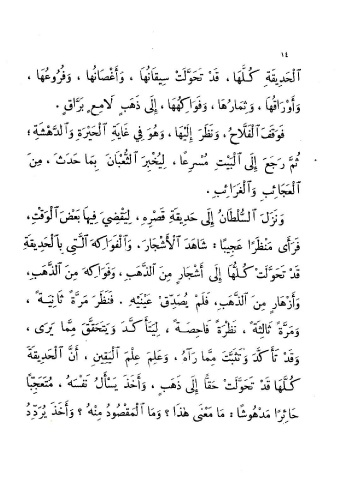 ١٤
الْحَدِيقَةِ كُلَّهَا ، قَدْ تَحَوَّلَتْ سِيقَانُهَا ، وَأَغْصَانُهَا ، وَفُرُوعُهَا ،
وَأَوْرَاقُهَا ، وَثِمَارُهَا ، وَفَوَاكِهُهَا ، إِلَى ذَهَبٍ لَامِعٍ بَرَّاقٍ .
فَوَقَفَ الْفَلَّاحُ ، وَنَظَرَ إِلَيْهَا ، وَهُوَ فِي غَايَةِ الْحَيْرَةِ وَالدَّهْشَةِ ؛
ثُمَّ رَجَعَ إِلَى الْبَيْتِ مُسْرِعًا ، لِيُخْبِرَ الثُّعْبَانَ بِمَا حَدَثَ ، مِنَ
الْعَجَائِبِ وَالْغَرَائِبِ .
وَنَزَلَ السُّلْطَانُ إِلَى حَدِيقَةِ قَصْرِهِ ، لِيَقْضِيَ فِيهَا بَعْضَ الْوَقْتِ ،
فَرَأَى مَنْظَرًا عَجِيبًا : شَاهَدَ الْأَشْجَارَ ، وَالْفَوَاكِهَ الَّتِي بِالْحَدِيقَةِ
قَدْ تَحَوَّلَتْ كُلُّهَا إِلَى أَشْجَارٍ مِنَ الذَّهَبِ ، وَفَوَاكِهَ مِنَ الذَّهَبِ ،
وَأَزْهَارٍ مِنَ الذَّهَبِ ، فَلَمْ يُصَدِّقْ عَيْنَيْهِ . فَنَظَرَ مَرَّةً ثَانِيَةً ،
وَمَرَّةً ثَالِثَةً ، نَظْرَةً فَاحِصَةً ، لِيَتَأَكَّدَ وَيَتَحَقَّقَ مِمَّا يَرَى ،
وَقَدْ تَأَكَّدَ وَتَثَبَّتَ مِمَّا رَآهُ ، وَعَلِمَ عِلْمَ الْيَقِينِ ، أَنَّ الْحَدِيقَةَ
كُلَّهَا قَدْ تَحَوَّلَتْ حَقًّا إِلَى ذَهَبٍ ، وَأَخَذَ يَسْأَلُ نَفْسَهُ ، مُتَعَجِّبًا
حَائِرًا مَدْهُوشًا : مَا مَعْنَى هٰذَا ؟ وَمَا الْمَقْصُودُ مِنْهُ ؟ وَأَخَذَ يُرَدِّدُ